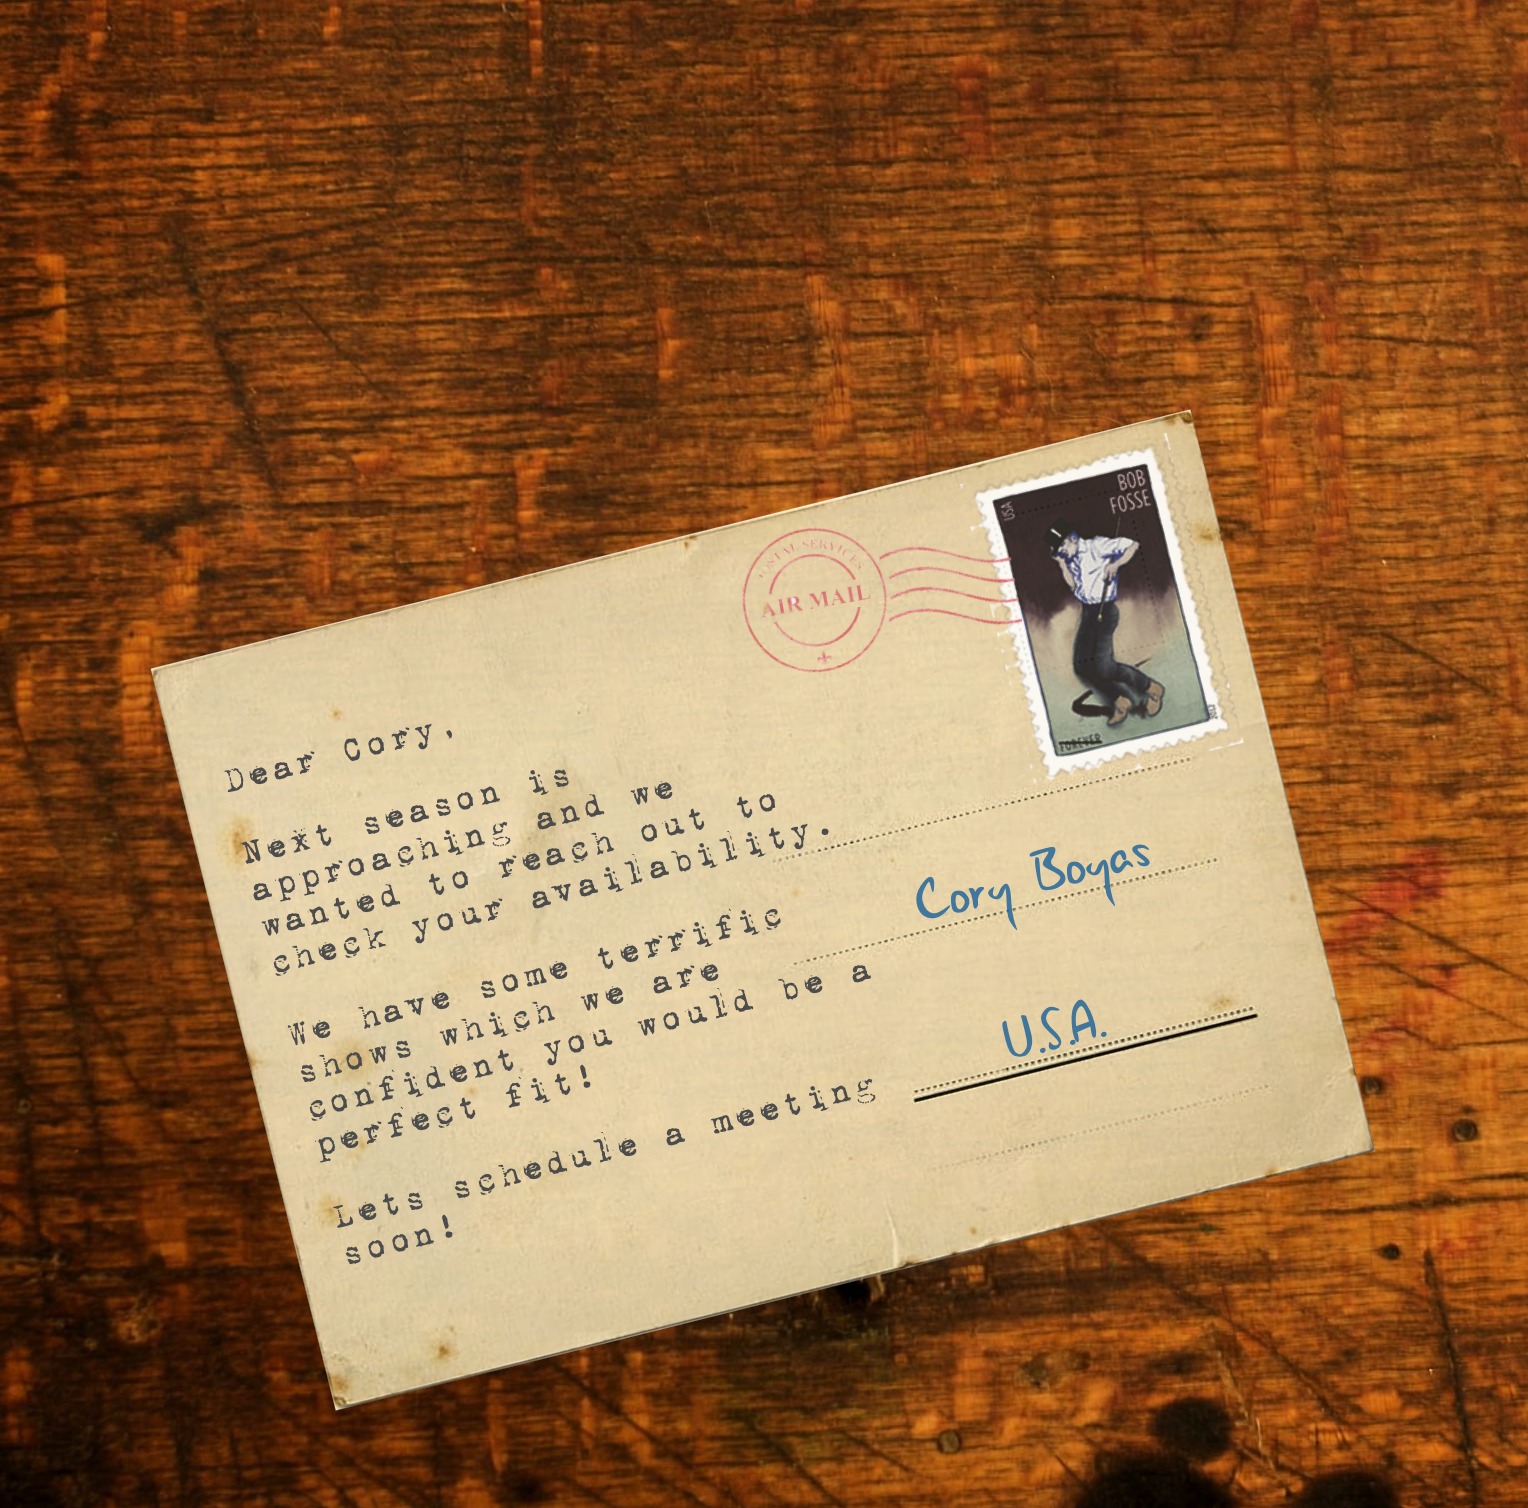 Dear Cory,
Next season is
approaching and we
wanted to reach out to
check your availability.
We have some terrific
shows which we are
confident you would be a
perfect fit!
Lets schedule a meeting
soon!
POSTAL SERVICES
AIR MAIL
BOB
FOSSE
USA
FOREVER
2012
Cory Boyas
U.S.A.